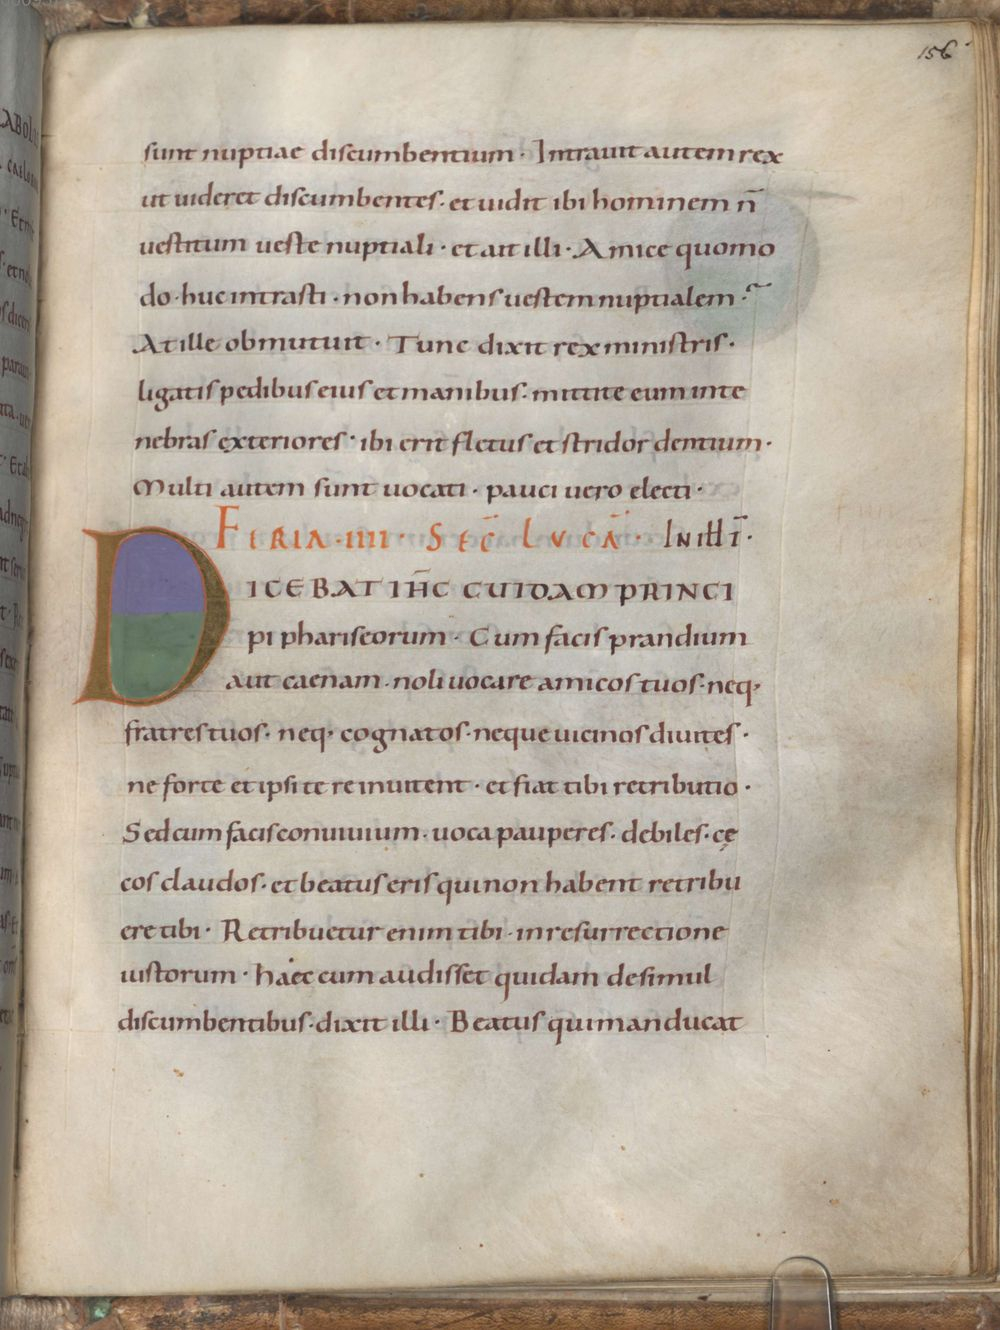 156
sunt nuptiae discumbentium · Intrauit autem rex
ut uideret discumbentes · et uidit ibi hominem n̄
uestitum ueste nuptiali · et ait illi · Amice quomo
do · huc intrasti · non habens uestem nuptialem ·
At ille obmutuit · Tunc dixit rex ministris ·
ligatis pedibus eius et manibus · mittite eum in te
nebras exteriores · ibi erit fletus et stridor dentium ·
Multi autem sunt uocati · pauci uero electi ·
FERIA · IIII · SEC̄ LUCĀ · IN ILL̄ T̄ ·
DICEBAT IH̄C CUIDAM PRINCI
pi phariseorum · Cum facis prandium
aut caenam · noli uocare amicos tuos · neq;
fratres tuos · neq; cognatos · neque uicinos diuites ·
ne forte et ipsi te reinuitent · et fiat tibi retributio ·
Sed cum facis conuiuium · uoca pauperes · debiles · cę
cos claudos · et beatus eris qui non habent retribu
ere tibi · Retribuetur enim tibi · in resurrectione
iustorum · haec cum audisset quidam de simul
discumbentibus · dixit illi · Beatus qui manducat